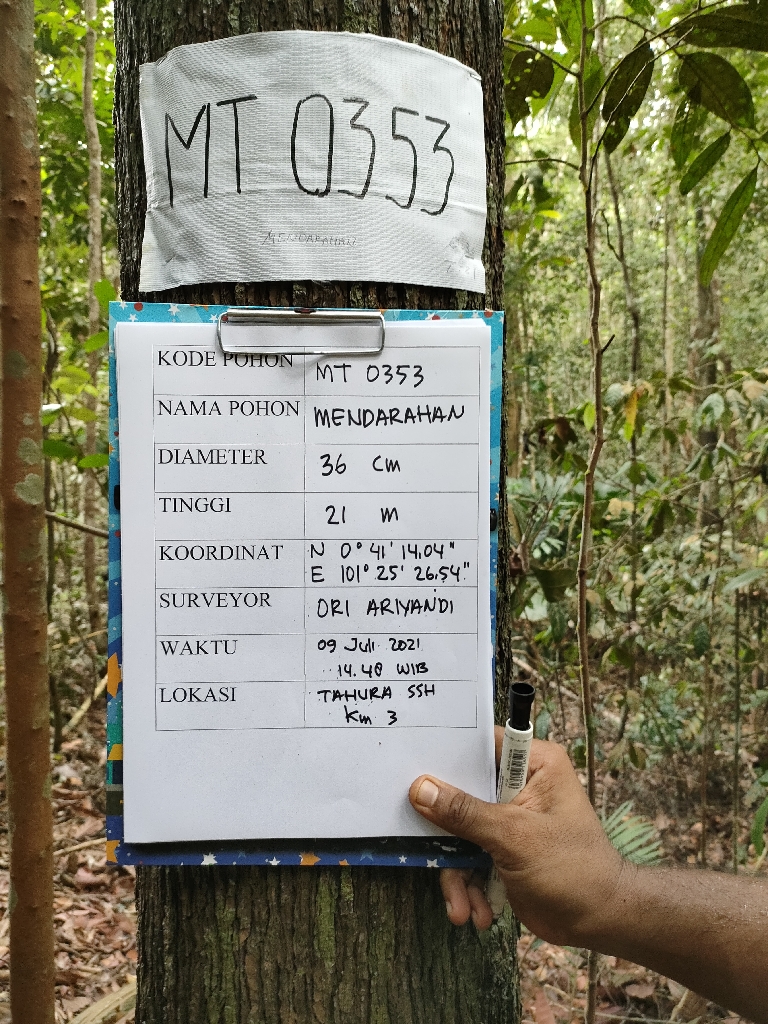 MT 0353
MENDARAHAN
KODE POHON MT 0353
NAMA POHON MENDARAHAN
DIAMETER 36 cm
TINGGI 21 m
KOORDINAT N 0° 41' 14.04"
E 101° 25' 26.54"
SURVEYOR ORI ARIYANDI
WAKTU 09 Juli 2021
14.48 WIB
LOKASI TAHURA SSH
Km 3